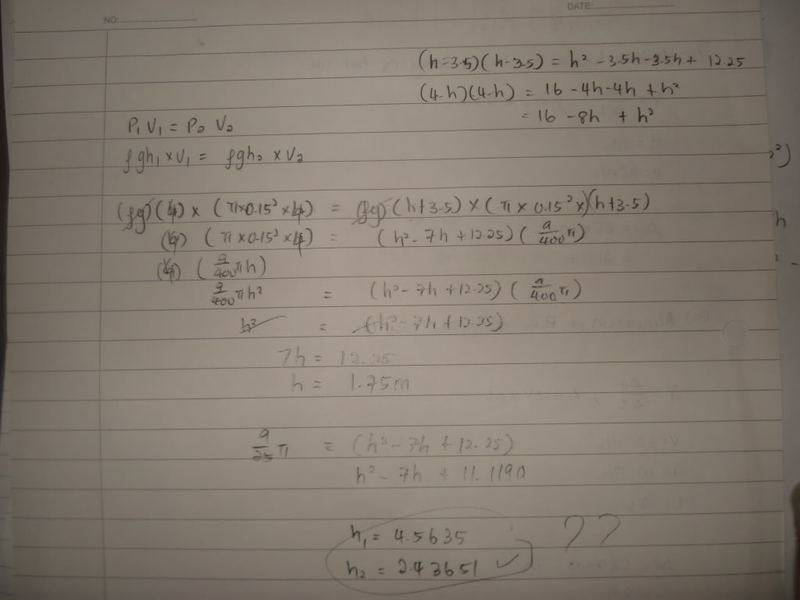 NO:
DATE:
(h-3.5)(h-3.5) = h² - 3.5h - 3.5h + 12.25
(4-h)(4-h) = 16 - 4h - 4h + h²
= 16 - 8h + h²
P₁V₁ = P₂ V₂
ρgh₁ × V₁ = ρgh₂ × V₂
(ρg)(4) × (π×0.15²×4) = (ρg)(h+3.5) × (π × 0.15² ×)(h+3.5)
(π×0.15²×4) = (h² - 7h + 12.25) (9/400 π)
(9/400 πh)
9/400 πh² = (h² - 7h + 12.25) (9/400 π)
h² = (h² - 7h + 12.25)
7h = 12.25
h = 1.75m
9/25 π = (h² - 7h + 12.25)
h² - 7h + 11.1190
h₁ = 4.5635 ??
h₂ = 2.43651 ✓